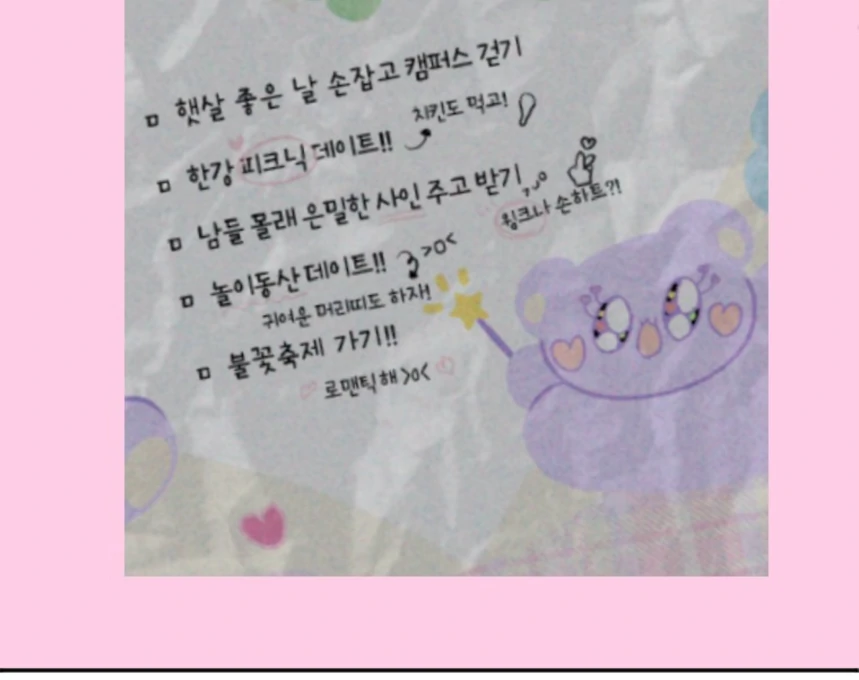 ▫ 햇살 좋은 날 손잡고 캠퍼스 걷기
▫ 한강 피크닉 데이트!!
치킨도 먹고!
▫ 남들 몰래 은밀한 사인 주고 받기
윙크나 손하트?!
▫ 놀이동산 데이트!! >o<
귀여운 머리띠도 하자!
▫ 불꽃축제 가기!!
로맨틱해 >o<